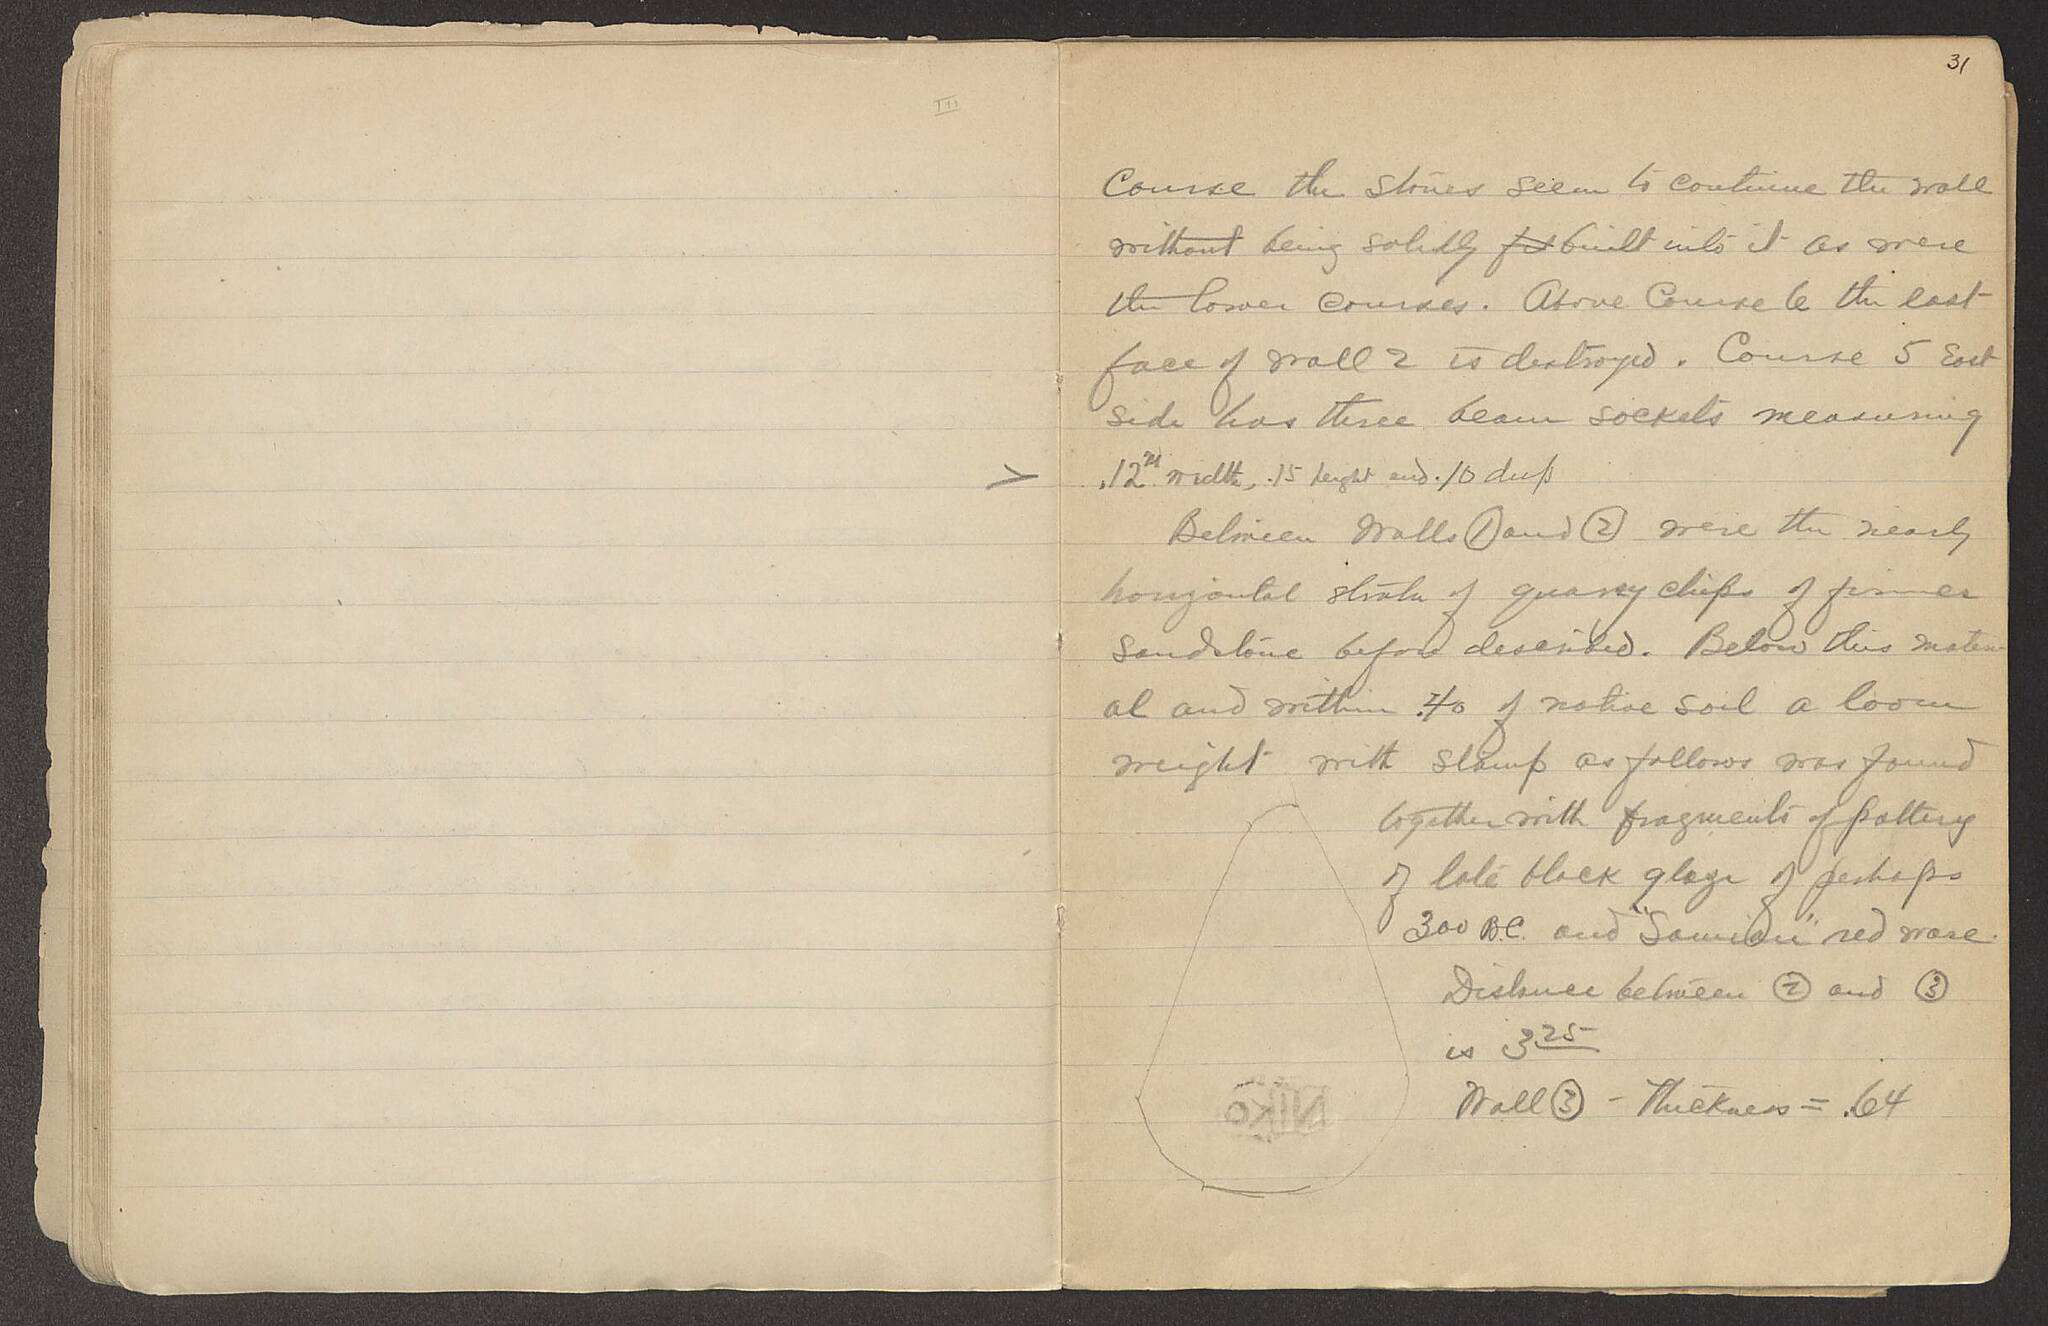 III
31
Course the stones seem to continue the wall
without being solidly fit built into it as were
the lower courses. Above Course 6 the east
face of wall 2 is destroyed. Course 5 East
side has three beam sockets measuring
> .12ᴹ width, .15 height and .10 deep
Between Walls ① and ② were the nearly
horizontal strata of quarry chips of firmer
sandstone before described. Below this materi-
al and within .40 of native soil a loom
weight with stamp as follows was found
together with fragments of pottery
of late black glaze of perhaps
300 B.C. and "Samian" red ware.
Distance between ② and ③
is 3.25
NIKO
Wall ③ - Thickness = .64